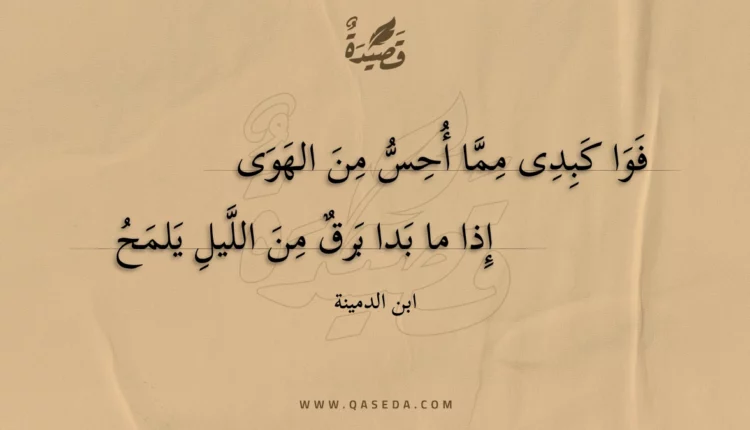 قَصِيدَةٌ
فَوَا كَبِدِى مِمَّا أُحِسُّ مِنَ الهَوَى
إِذا ما بَدا بَرقٌ مِنَ اللَّيلِ يَلمَحُ
ابن الدمينة
WWW.QASEDA.COM